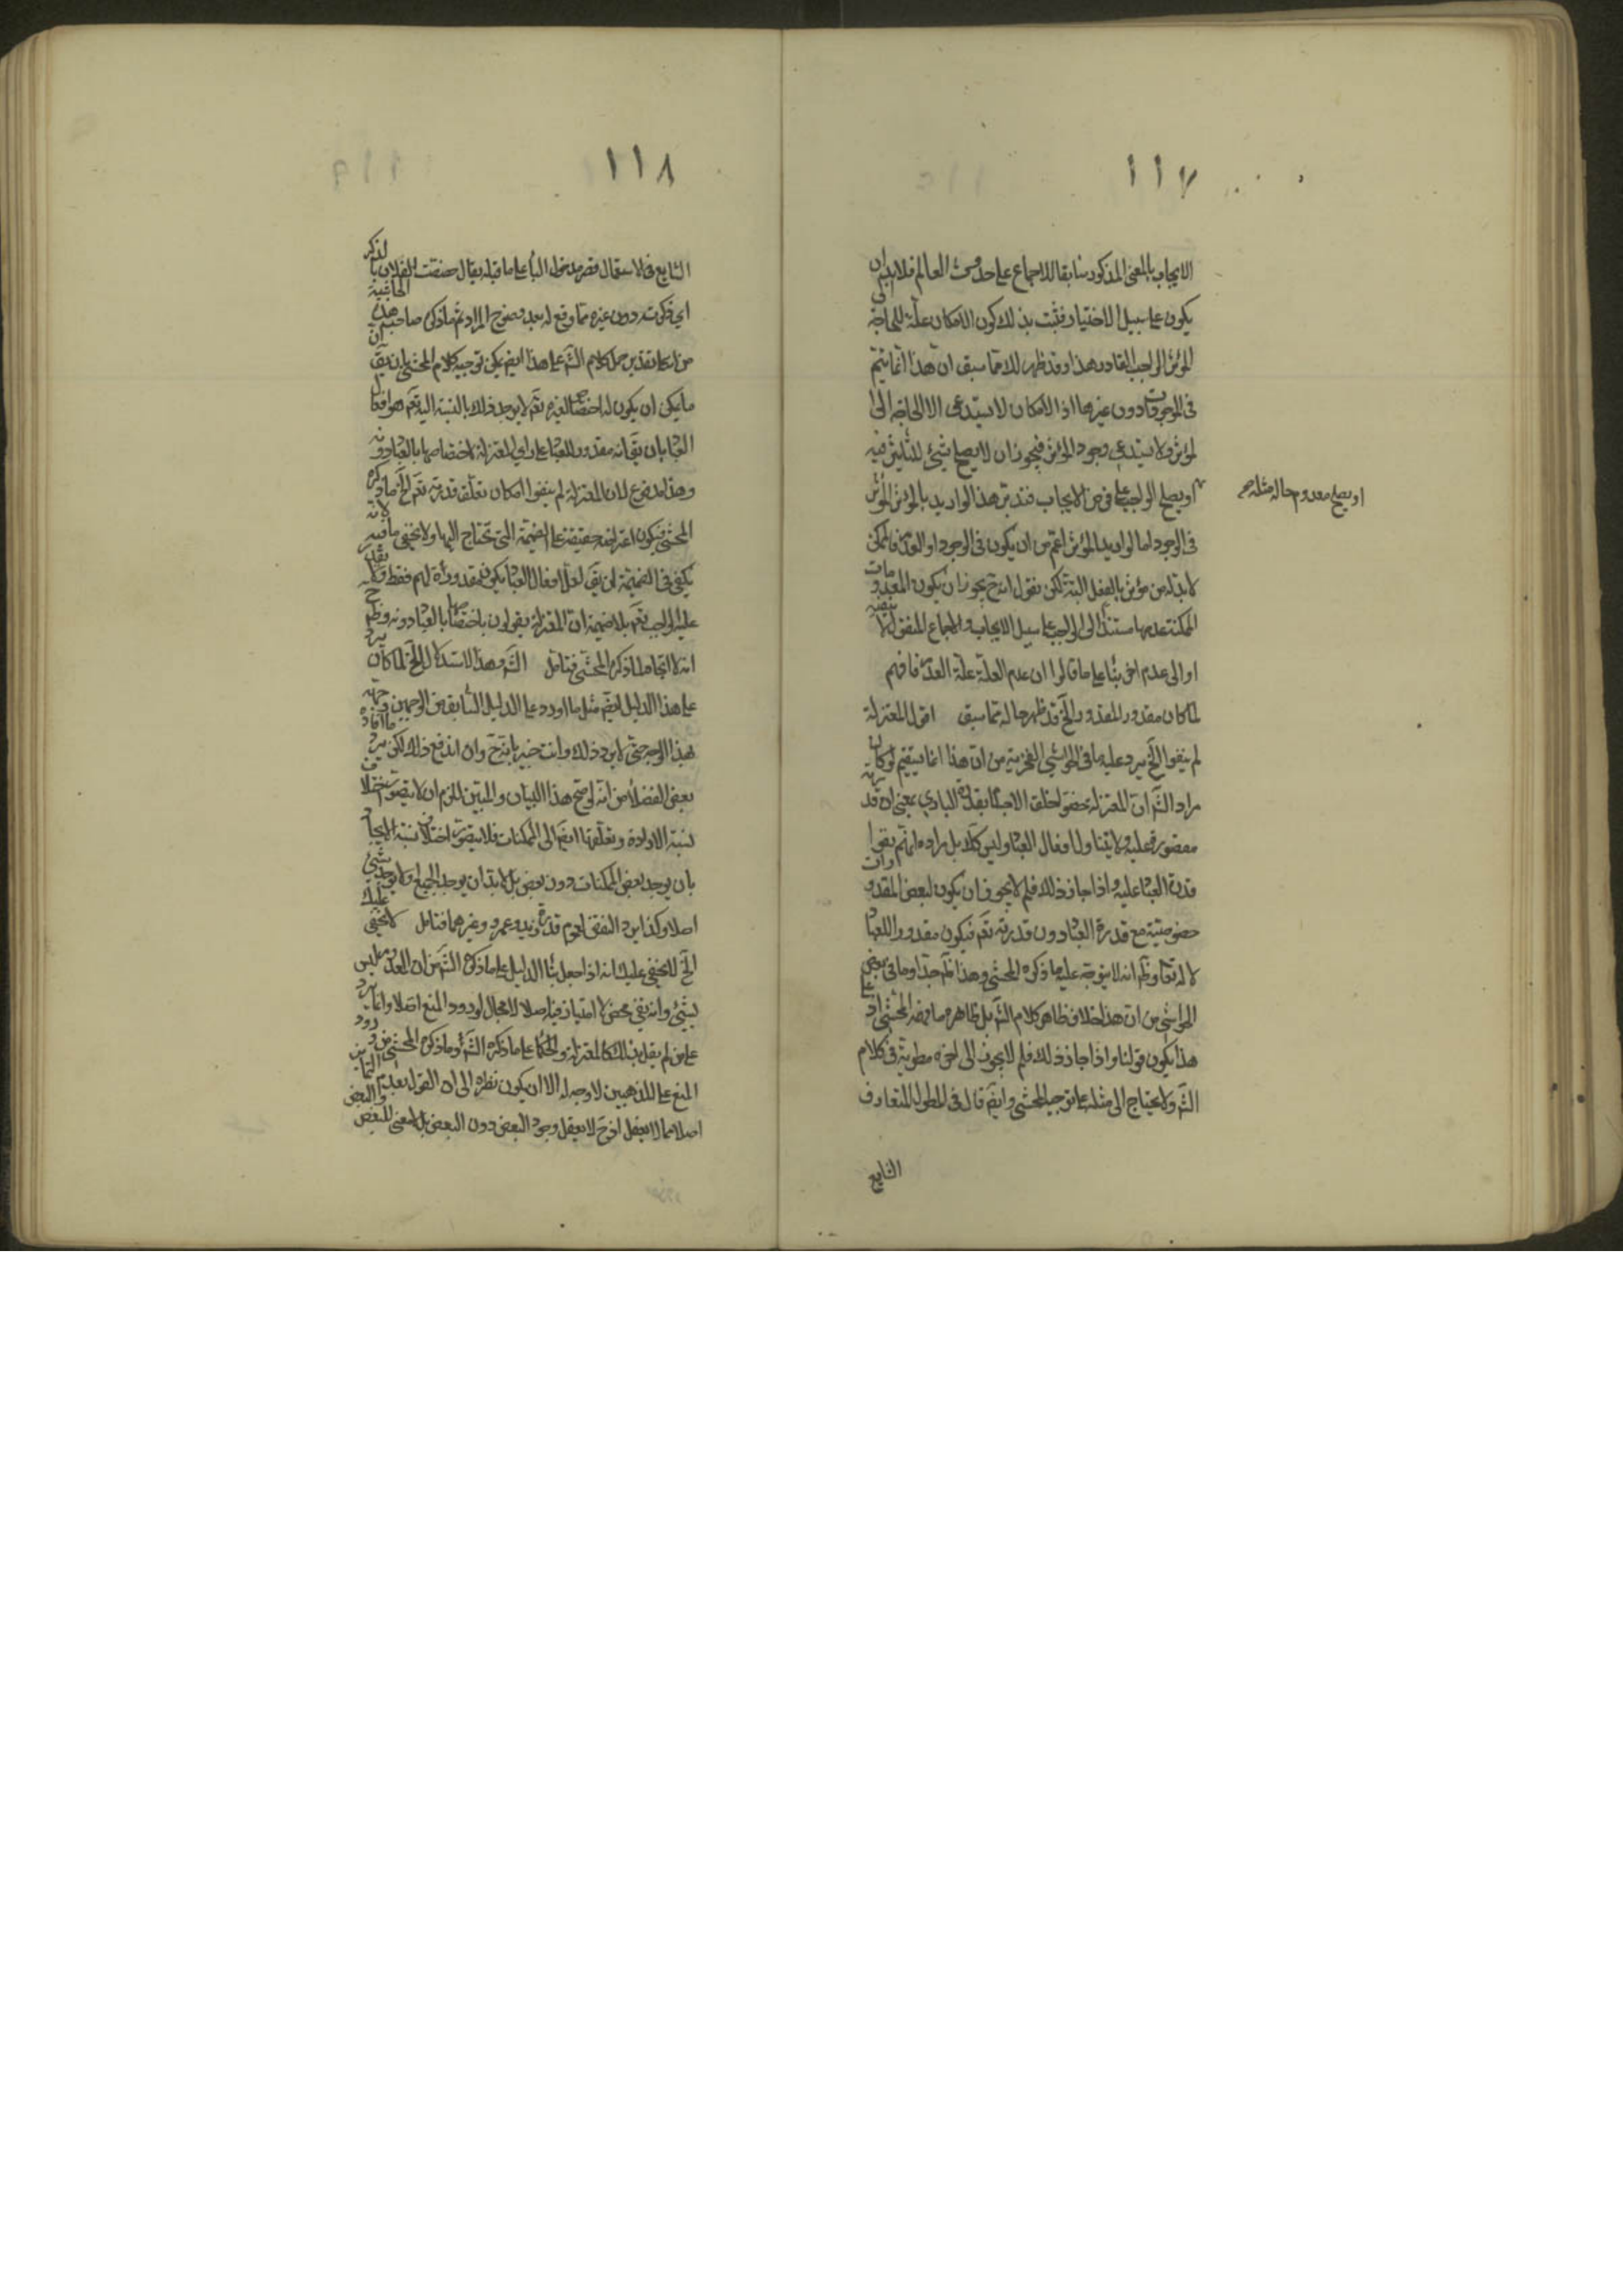 ١١٧
الايجاب بالمعنى المذكور سابقا للاجماع على حدوث العالم فلا بد ان
يكون على سبيل الاختيار فثبت بذلك كون الامكان علة للحاجة الى
المؤثر الواجب القادر هذا وقد ظهر لك مما سبق ان هذا انما يتم
فى الموجودات دون غيرها اذ الامكان لا يستدعى الا الحاجة الى
المؤثر ولا يستدعى وجود المؤثر فيجوز ان لا يصلح شيئ للتأثير فيه
او يصلح الواجب على فرض الايجاب فتدبر هذا لو اريد بالمؤثر المؤثر
او يصلح معدوم حاله مثله صح
فى الوجود اما لو اريد المؤثر اعم من ان يكون فى الوجود او العدم فالممكن
لا بد له من مؤثر بالفعل البتة لكن نقول انه ح يجوز ان يكون المعدومات
الممكنة عدمها مستندا الى الواجب على سبيل الايجاب والاجماع لا ينفيه
او الى عدم اخر بناء على ما قالوا ان عدم العلة علة العدم فافهم
لما كان مقدور المقدور الخ قد ظهر حاله مما سبق اقول المعتزلة
لم ينفوا الخ يرد عليه ما فى الحواشى الفخرية من ان هذا انما يستقيم لو كان
مراد الش ان المعتزلة خصوا خلق الاجسام بقدرة البارى بمعنى ان قدرته
مقصورة عليه ولا يتناول افعال العباد وليس كك بل مراده انهم نفوا
قدرة العباد عليه واذا جاز ذلك فلم لا يجوز ان يكون لبعض المقدورات
خصوصية مع قدرة العباد دون قدرته تعم فيكون مقدورا للعباد
لا له تعا وظ انه لا يتوجه عليه ما ذكره المحشى وهذا ظم جدا وما فى بعض
الحواشى من ان هذا خلاف ظاهر كلام الش بل ظاهره ما فهمه المحشى اذ على
هذا يكون قولنا واذا جاز ذلك فلم لا يجوز الى اخره مطوية فى كلام
الش ولا يحتاج الى مثله على توجيه المحشى وايضم قال فى المطول المتعارف
الشايع
١١٨
الشايع فى الاستعمال قصر مدخول الباء على ما قبله يقال خصصت الفلان بالذكر
اى ذكرته دون غيره مما وقع له بعد وضوح المراد ثم ما ذكره صاحب هذه الحاشية
من انه على تقدير حمل كلام الش على هذا ايضم يمكن توجيه كلام المحشى بان يق ان
ما يمكن ان يكون له اختصاص بالغيره تعم لا يوجد فذلك بالنسبة اليه تعم هو افعال
العباد بان يق انه مقدور للعباد على رأى المعتزلة لاختصاصها بالعباد دونه
وهذا مدفوع لان المعتزلة لم ينفوا امكان تعلق قدرته تعم الخ ما ذكره
المحشى فيكون اعتراضه حقيقة على الضميمة التى تحتاج اليها ولا يخفى ما فيه لانه
يكفى فى الضميمة ان يق لعل افعال العباد يكون مقدورة لهم فقط ولا يقدر
عليه الواجب تعم بلا ضميمة ان المعتزلة يقولون باختصاصها بالعباد دونه وظم ح
انه لا اتجاه لما ذكره المحشى فتامل الش وهذا الاستدلال الخ لما كان يرد
على هذا الدليل ايضم مثل ما اورد على الدليل السابق من الوجهين وجهه
بهذا الوجه حتى لا يرد ذلك وانت خبير بانه ح وان اندفع ذلك لكن يرد ما افاده
بعض الفضلاء من انه لو صح هذا البيان والمبين للزم ان لا يتصور اختلاف
نسبة الارادة وتعلقها ايضم الى الممكنات فلا يتصور اختلاف نسبة الايجاد
بان يوجد بعض الممكنات دون بعض بل لا بد ان يوجد الجميع او لا يوجد شيئ
اصلا وكذا يرد النقض بعموم قدرة زيد وعمرو وغيرهما فتامل لا يخفى عليك
الخ لا يخفى عليك انه اذا جعل بناء الدليل على ما ذكره الش من ان المعدوم ليس
بشيئ وانه نفى محض لا امتياز فيه اصلا لا مجال لورود المنع اصلا وانما يرد
على من لم يقل بذلك كالمعتزلة والحكماء على ما ذكره الش وما ذكره المحشى من ورود
المنع على المذهبين لا وجه له الا ان يكون نظره الى ان القول بعدم التمايز
اصلا مما لا يعقل اذ ح لا يعقل وجود البعض دون البعض بل لا معنى للبعض والبعض